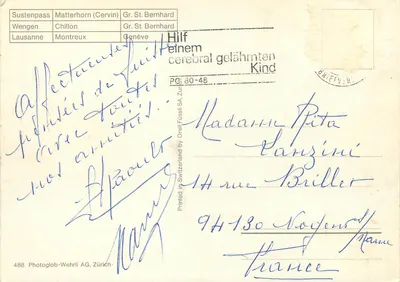 Sustenpass Matterhorn (Cervin) Gr. St. Bernhard
Wengen Chillon Gr. St. Bernhard
Lausanne Montreux Genève
Hilf
einem
cerebral gelähmten
Kind
PC 80-48
Affectueuses
pensées de
avec toutes
nos amitiés...
Printed in Switzerland by Orell Füssli SA, Zürich
Madame Rita
Lanzini
14 rue Brillet
94130 Nogent s/
Marne
France
488 Photoglob-Wehrli AG, Zürich